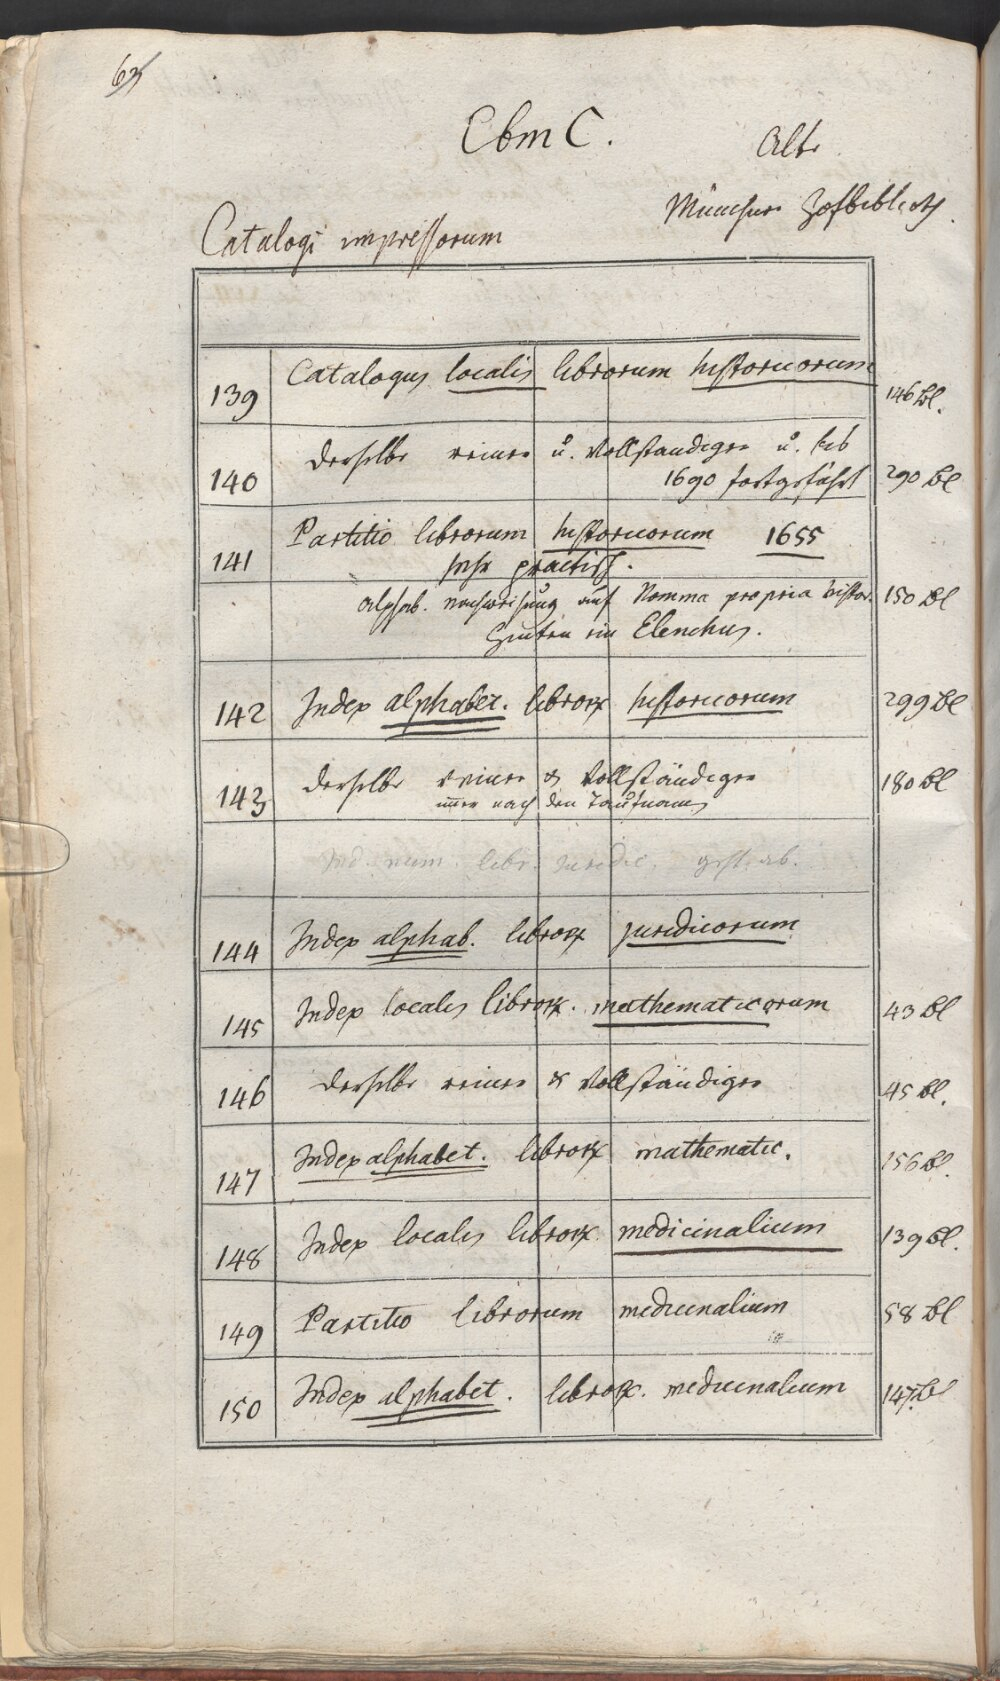 63
Cbm C.
Alte
Münchner Hofbiblioth.
Catalogi impressorum
139 Catalogus localis librorum historicorum 146 Bl.
140 derselbe reiner u. vollständiger u. bis
1690 fortgeführt 290 Bl
141 Partitio librorum historicorum 1655
sehr practisch.
alphab. nachweisung auf Nomina propria histor. 150 Bl
hinten ein Elenchus.
142 Index alphabet. libror. historicorum 299 Bl
143 derselbe reiner & vollständiger 180 Bl
immer nach den Taufnamen
Ind. num. libr. juridic.
144 Index alphab. libror. juridicorum
145 Index localis libror. mathematicorum 43 Bl
146 derselbe reiner & vollständiger 45 Bl.
147 Index alphabet. libror. mathematic. 156 Bl.
148 Index localis libror. medicinalium 139 Bl.
149 Partitio librorum medicinalium 58 Bl
150 Index alphabet. libror. medicinalium 147 Bl